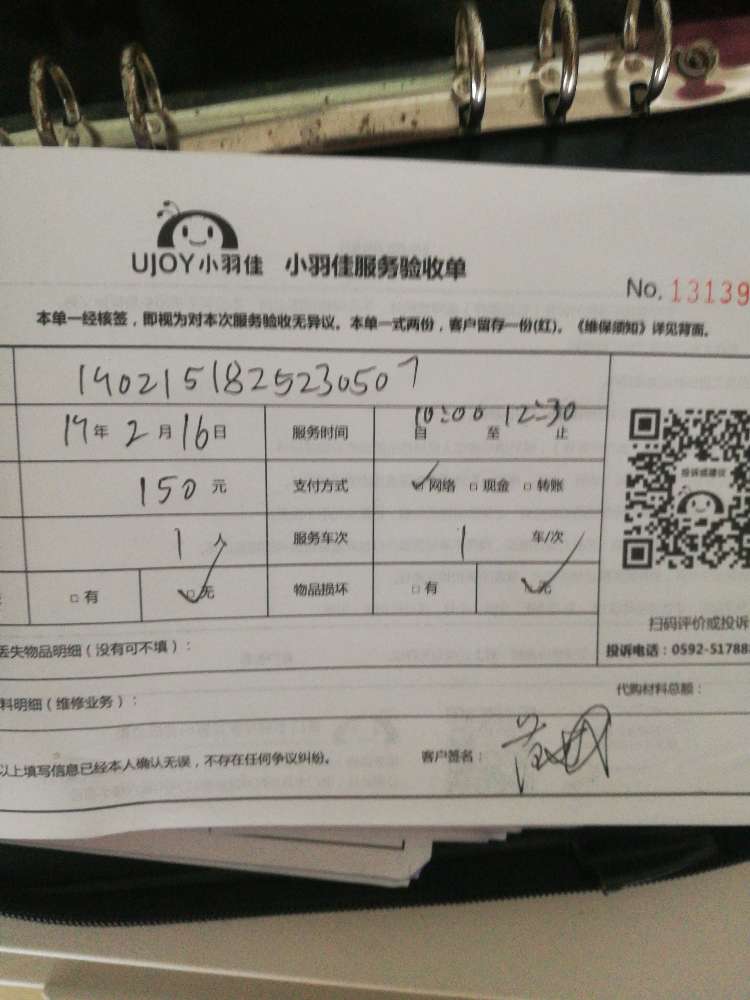 UJOY小羽佳 小羽佳服务验收单
No. 13139
本单一经核签，即视为对本次服务验收无异议。本单一式两份，客户留存一份(红)。《维保须知》详见背面。
1902151825230507
19年2月16日 服务时间 10:00 12:30
自 至 止
150元 支付方式 网络 □现金 □转账
1人 服务车次 1 车/次
□有 □无 物品损坏 □有 □无
投诉或建议
扫码评价或投诉
丢失物品明细（没有可不填）：
投诉电话：0592-51788
料明细（维修业务）：
代购材料总额：
以上填写信息已经本人确认无误，不存在任何争议纠纷。 客户签名：